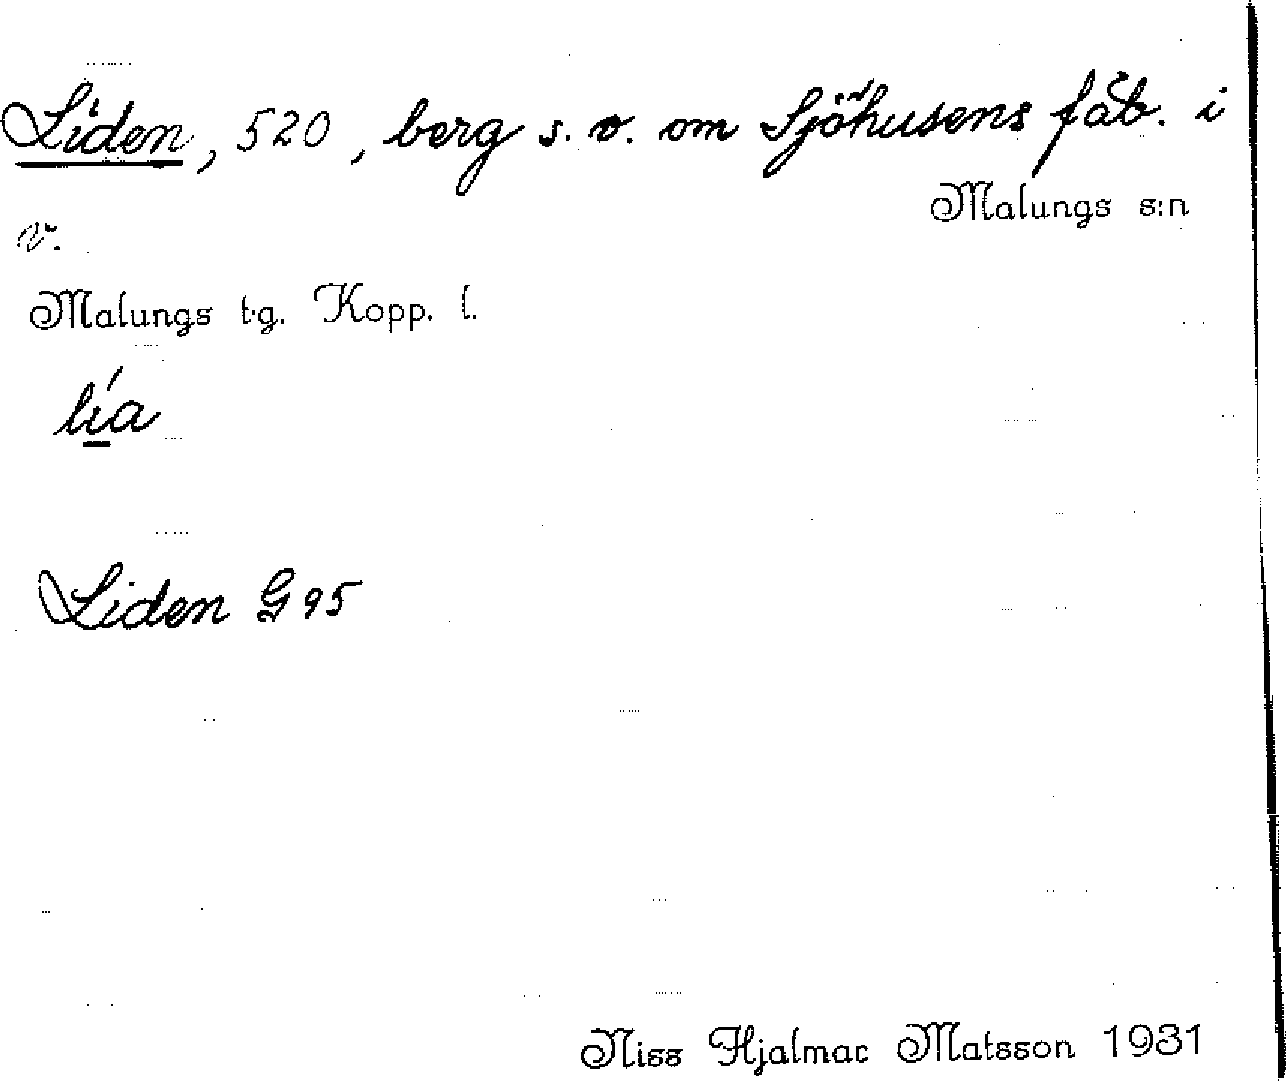 Liden, 520, berg s. v. om Sjöhusens fäb. i
Malungs s:n
v.
Malungs t.g. Kopp. l.
lía
Liden G95
Niss Hjalmar Matsson 1931